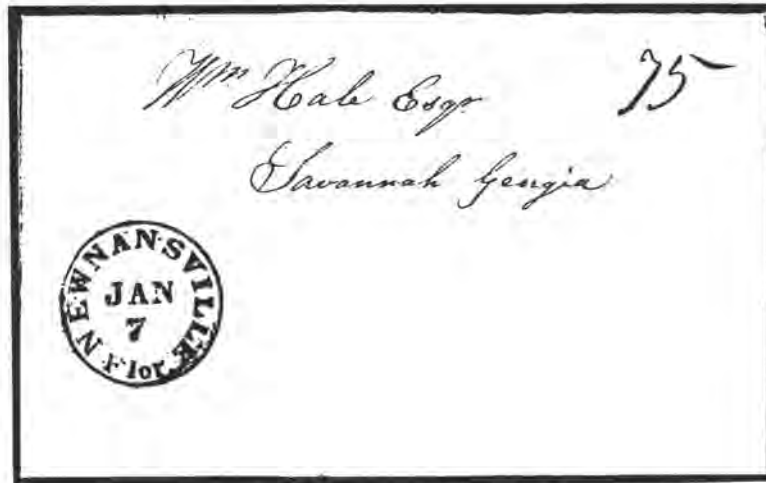 Wm Hale Esqr 75
Savannah Georgia
NEWNANSVILLE Flor.
JAN
7